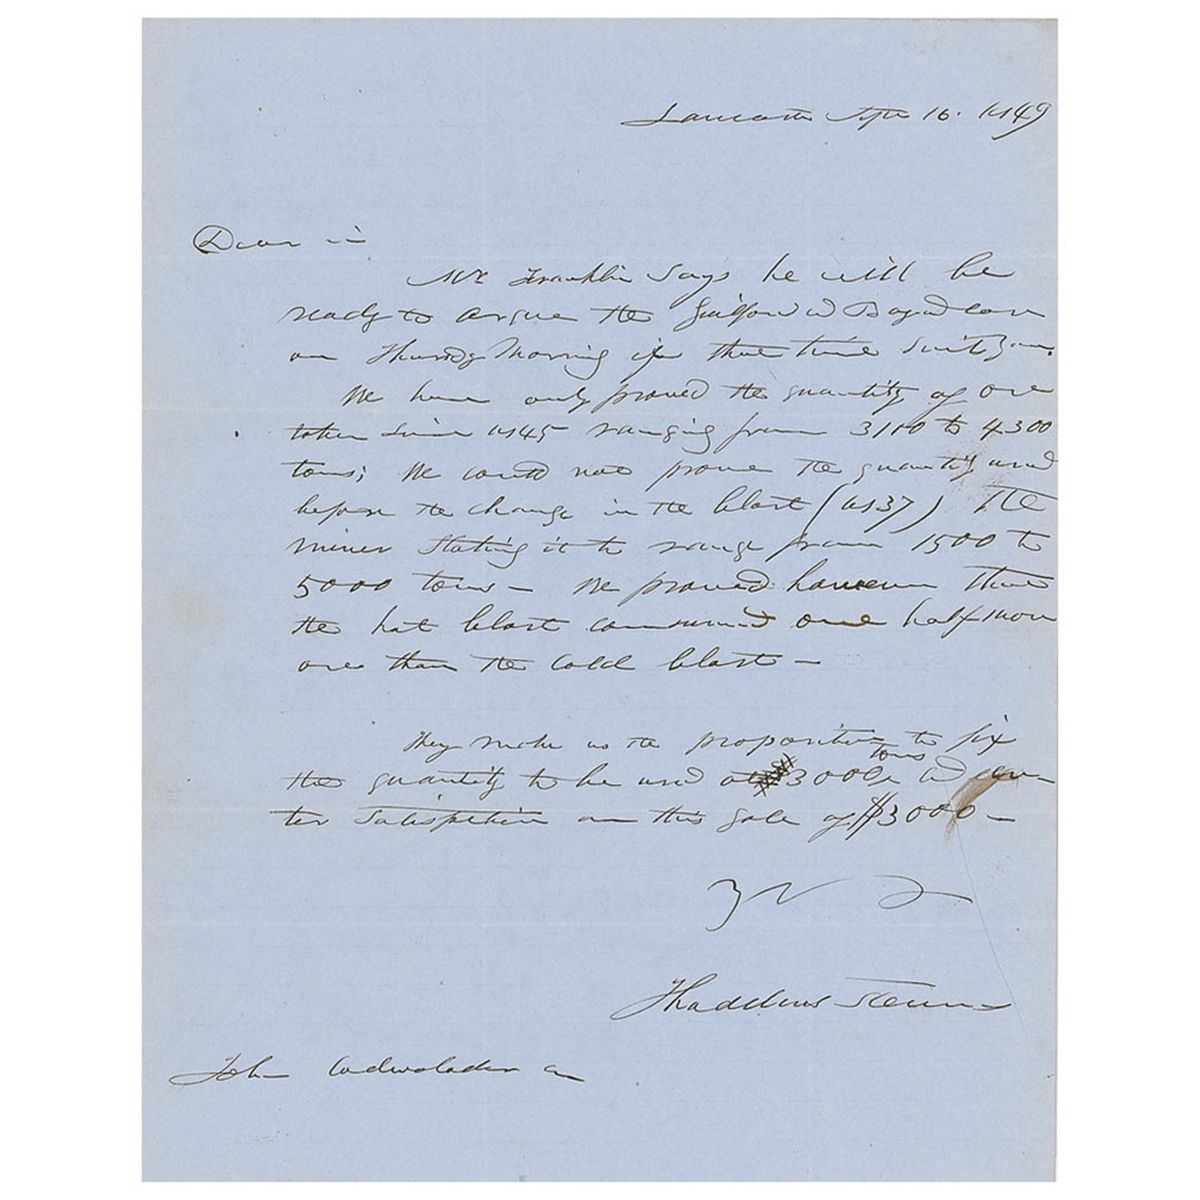 Lancaster Sept 16. 1849
Dear sir
Mr Franklin Says he will be
ready to argue the
on Thursdy Morning if that time Suits you.
We have only proved the quantity of ore
taken Since 1845 ranging from 3110 to 4300
tons; We could not prove the quantity used
before the change in the blast (1837) The
miner Stating it to range from 1500 to
5000 tons — We proved however that
the hot blast consumed one half more
ore than the Cold blast —
They make us the proposition to fix
the quantity to be used at 3000 tons
ter Satisfaction on this Sale of $3000 —
Thaddeus Stevens
John Cadwalader